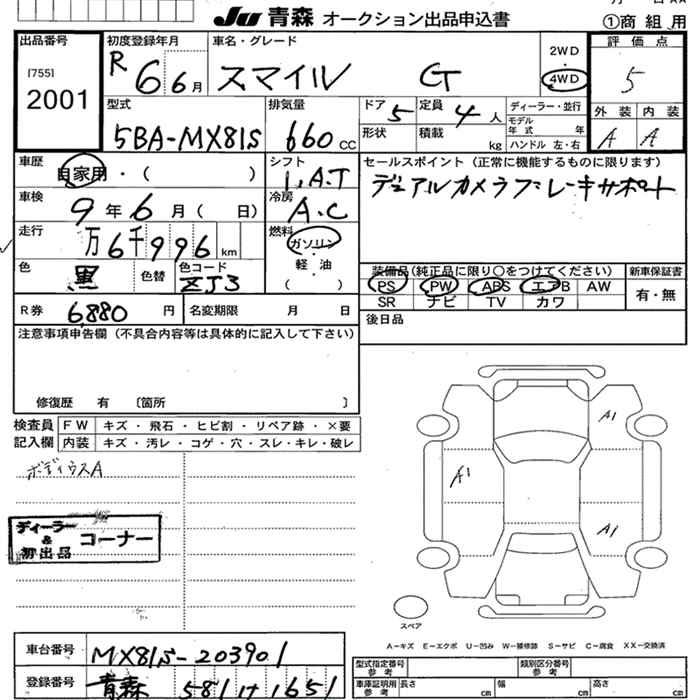 JU 青森 オークション出品申込書
①商 組 用
出品番号
[755]
2001
初度登録年月
R 6 6 月
車名・グレード
スマイル G
2WD
4WD
評 価 点
5
外 装 内 装
A A
型式
5BA-MX81S
排気量
660 CC
ドア 5
定員 4 人
形状
積載 kg
ディーラー・並行
モデル年式 年
ハンドル 左・右
車歴
自家用 ・ ( )
シフト
1, A.T
セールスポイント (正常に機能するものに限ります)
デュアルカメラブレーキサポート
車検
9 年 6 月 ( 日)
冷房
A.C
走行
万 6 千 9 9 6 km
燃料
ガソリン
軽 ・ 油
( )
色
黒
色替
色コード
ZJ3
装備品 (純正品に限り○をつけてください)
PS PW ABS エアB AW
SR ナビ TV カワ
新車保証書
有 ・ 無
R券 6,880 円
名変期限 月 日
後日品
注意事項申告欄 (不具合内容等は具体的に記入して下さい)
修復歴 有 〔箇所 〕
検査員記入欄
FW キズ ・ 飛石 ・ ヒビ割 ・ リペア跡 ・ ×要
内装 キズ・汚レ・コゲ・穴・スレ・キレ・破レ
ボディウスA
ディーラー & 初出品 コーナー
A1
A1
A1
スペア
A−キズ E−エクボ U−凹み W−補修跡 S−サビ C−腐食 XX−交換済
車台番号 MX81S-203901
登録番号 青森 581 け 1651
型式指定番号 参考
類別区分番号 参考
車庫証明用 参考 長さ cm 幅 cm 高さ cm